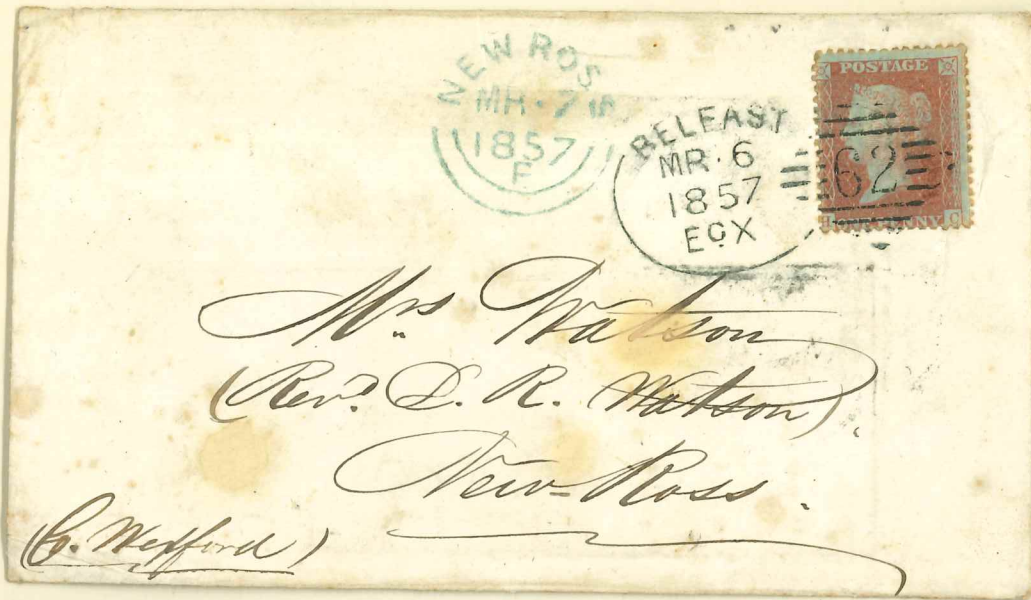 NEW ROS
MR · 7
1857
F
BELFAST
MR · 6
1857
E○X
62
POSTAGE
ONE PENNY
Mrs Watson
(Revd. D. R. Watson).
New-Ross.
(Co. Wexford)